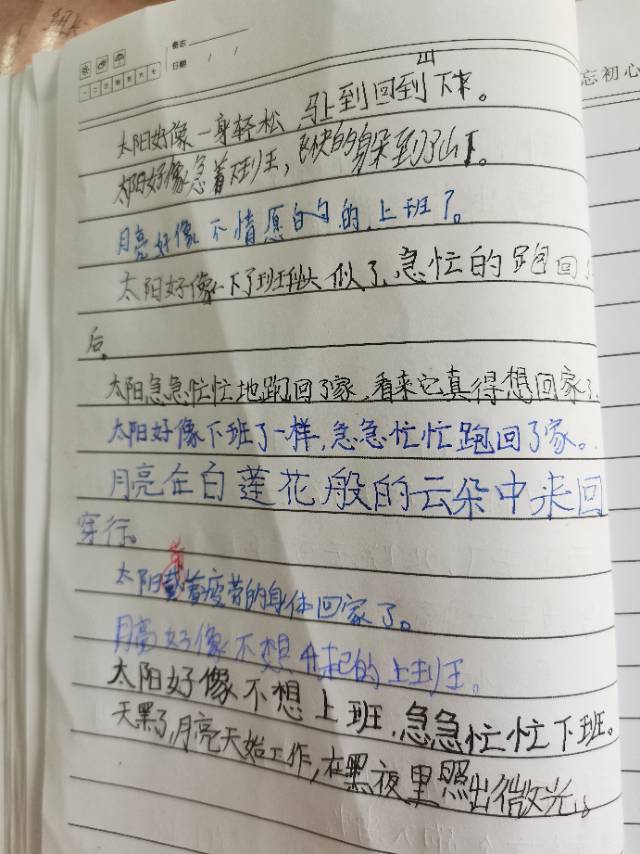 日期 / /
忘初心
山
太阳好像一身轻松,马上到回到下来。
太阳好像急着下班,飞快的躲到了山下。
月亮好像不情愿的上班了。
太阳好像下了班似的急忙的跑回了
后。
太阳急急忙忙地跑回了家,看来它真得想回家了,
太阳好像下班了一样,急急忙忙跑回了家。
月亮在白莲花般的云朵中来回
穿行。
太阳戴着疲劳的身体回家了。
月亮好像不想升起的上班。
太阳好像不想上班,急急忙忙下班。
天黑了,月亮天始工作,在黑夜里照出微光。